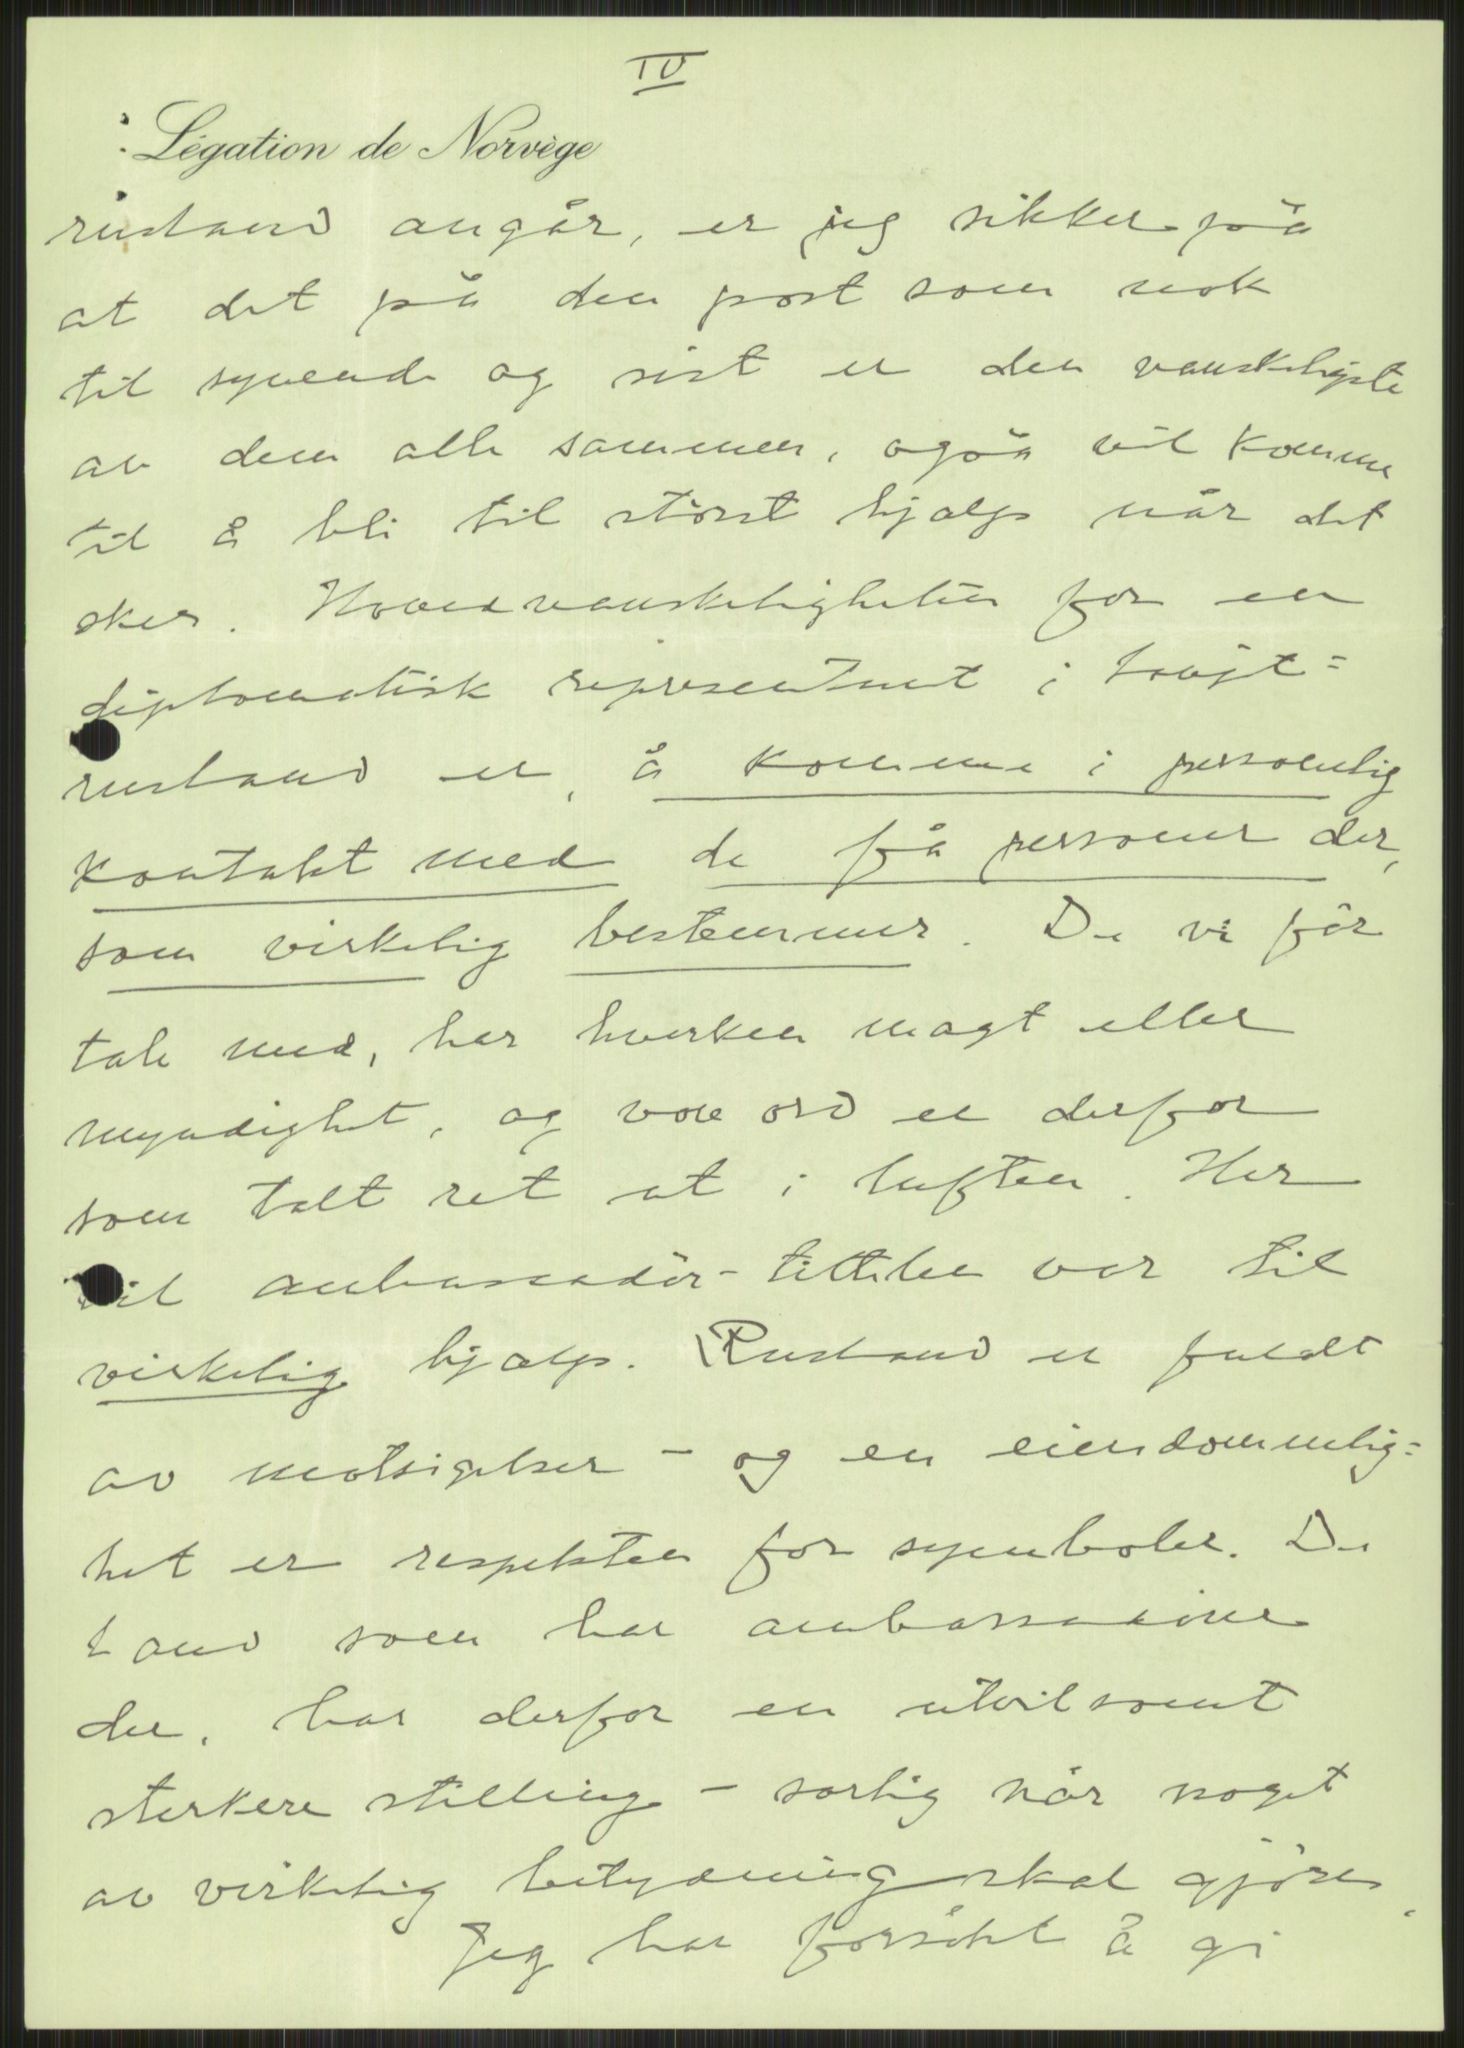 IV
Légation de Norvège
russland angår, er jeg sikker på
at det på den post som nok
til syvende og sist er den vanskeligste
av dem alle sammen, også vil komme
til å bli til størst hjælp når det
sker. Hovedvanskeligheten for en
diplomatisk representant i Sovjet=
russland er, å komme i personlig
kontakt med de få personer der,
som virkelig bestemmer. De vi får
tale med, har hverken magt eller
myndighet, og våre ord er derfor
som talt ret ut i luften. Her
vil ambassadör-tittelen være til
virkelig hjælp. Russland er fuldt
av motsigelser – og en eiendommelig=
het er respekten for symboler. De
land som har ambassadörer
der, har derfor en utvilsomt
sterkere stilling – særlig når noget
av virkelig betydning skal gjöres.
Jeg har forsökt å gi